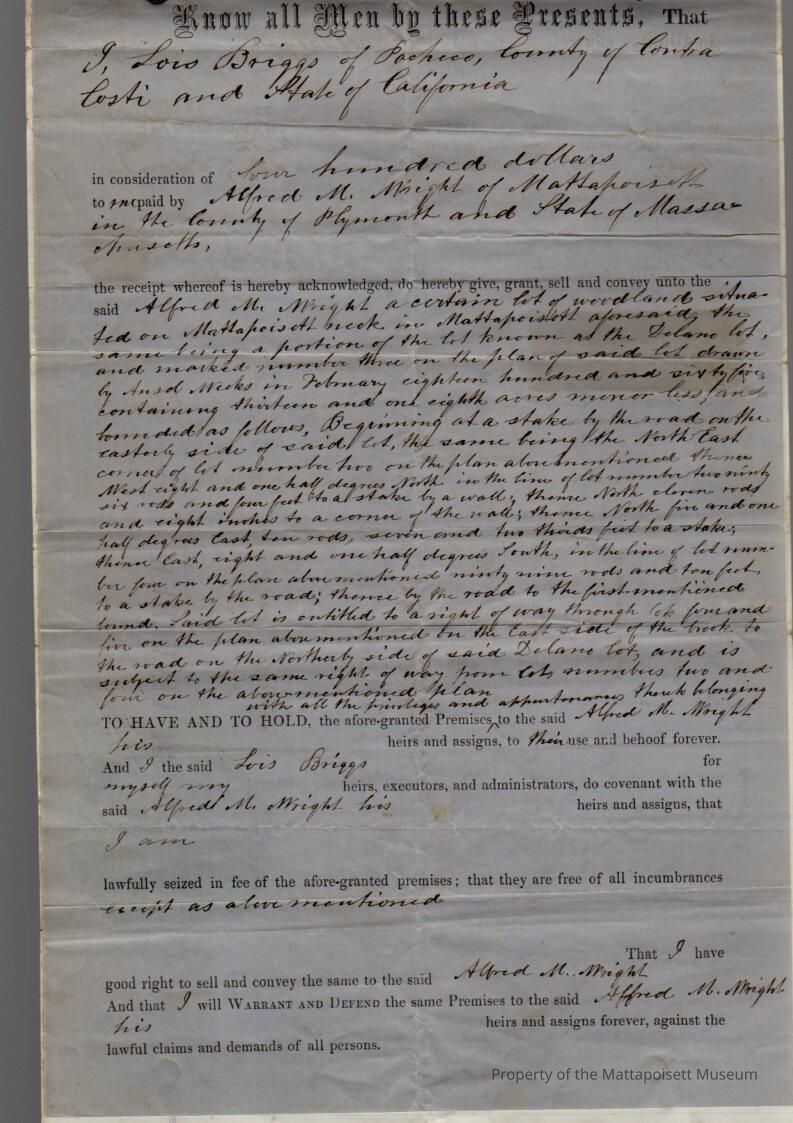 Know all Men by these Presents, That
I, Lois Briggs of Pacheco, County of Contra
Costi and State of California
in consideration of four hundred dollars
to me paid by Alfred M. Wright of Mattapoisett
in the County of Plymouth and State of Massa-
chusetts,
the receipt whereof is hereby acknowledged, do hereby give, grant, sell and convey unto the
said Alfred M. Wright a certain lot of woodland situa-
ted on Mattapoisett neck in Mattapoisett aforesaid, the
same being a portion of the lot known as the Delano lot,
and marked number three on the plan of said lot drawn
by Ansel Weeks in February eighteen hundred and sixty five
containing thirteen and one eighth acres more or less, and
bounded as follows, Beginning at a stake by the road on the
easterly side of said lot, the same being the North East
corner of lot number two on the plan above mentioned thence
West eight and one half degrees North in the line of lot number two ninty
six rods and four feet to a stake by a wall; thence North eleven rods
and eight inches to a corner of the wall; thence North five and one
half degrees East, ten rods, seven and two thirds feet to a stake;
thence East, eight and one half degrees South, in the line of lot num-
ber four on the plan above mentioned ninty nine rods and ten feet
to a stake by the road; thence by the road to the first-mentioned
bound. Said lot is entitled to a right of way through lots four and
five on the plan above mentioned on the East side of the brook to
the road on the Northerly side of said Delano lot, and is
subject to the same right of way from lots number two and
four on the above-mentioned plan
with all the privileges and appurtenances thereto belonging
TO HAVE AND TO HOLD, the afore-granted Premises to the said Alfred M. Wright
his heirs and assigns, to their use and behoof forever.
And I the said Lois Briggs for
myself my heirs, executors, and administrators, do covenant with the
said Alfred M. Wright his heirs and assigns, that
I am
lawfully seized in fee of the afore-granted premises; that they are free of all incumbrances
except as above mentioned
That I have
good right to sell and convey the same to the said Alfred M. Wright
And that I will WARRANT AND DEFEND the same Premises to the said Alfred M. Wright
his heirs and assigns forever, against the
lawful claims and demands of all persons.
Property of the Mattapoisett Museum